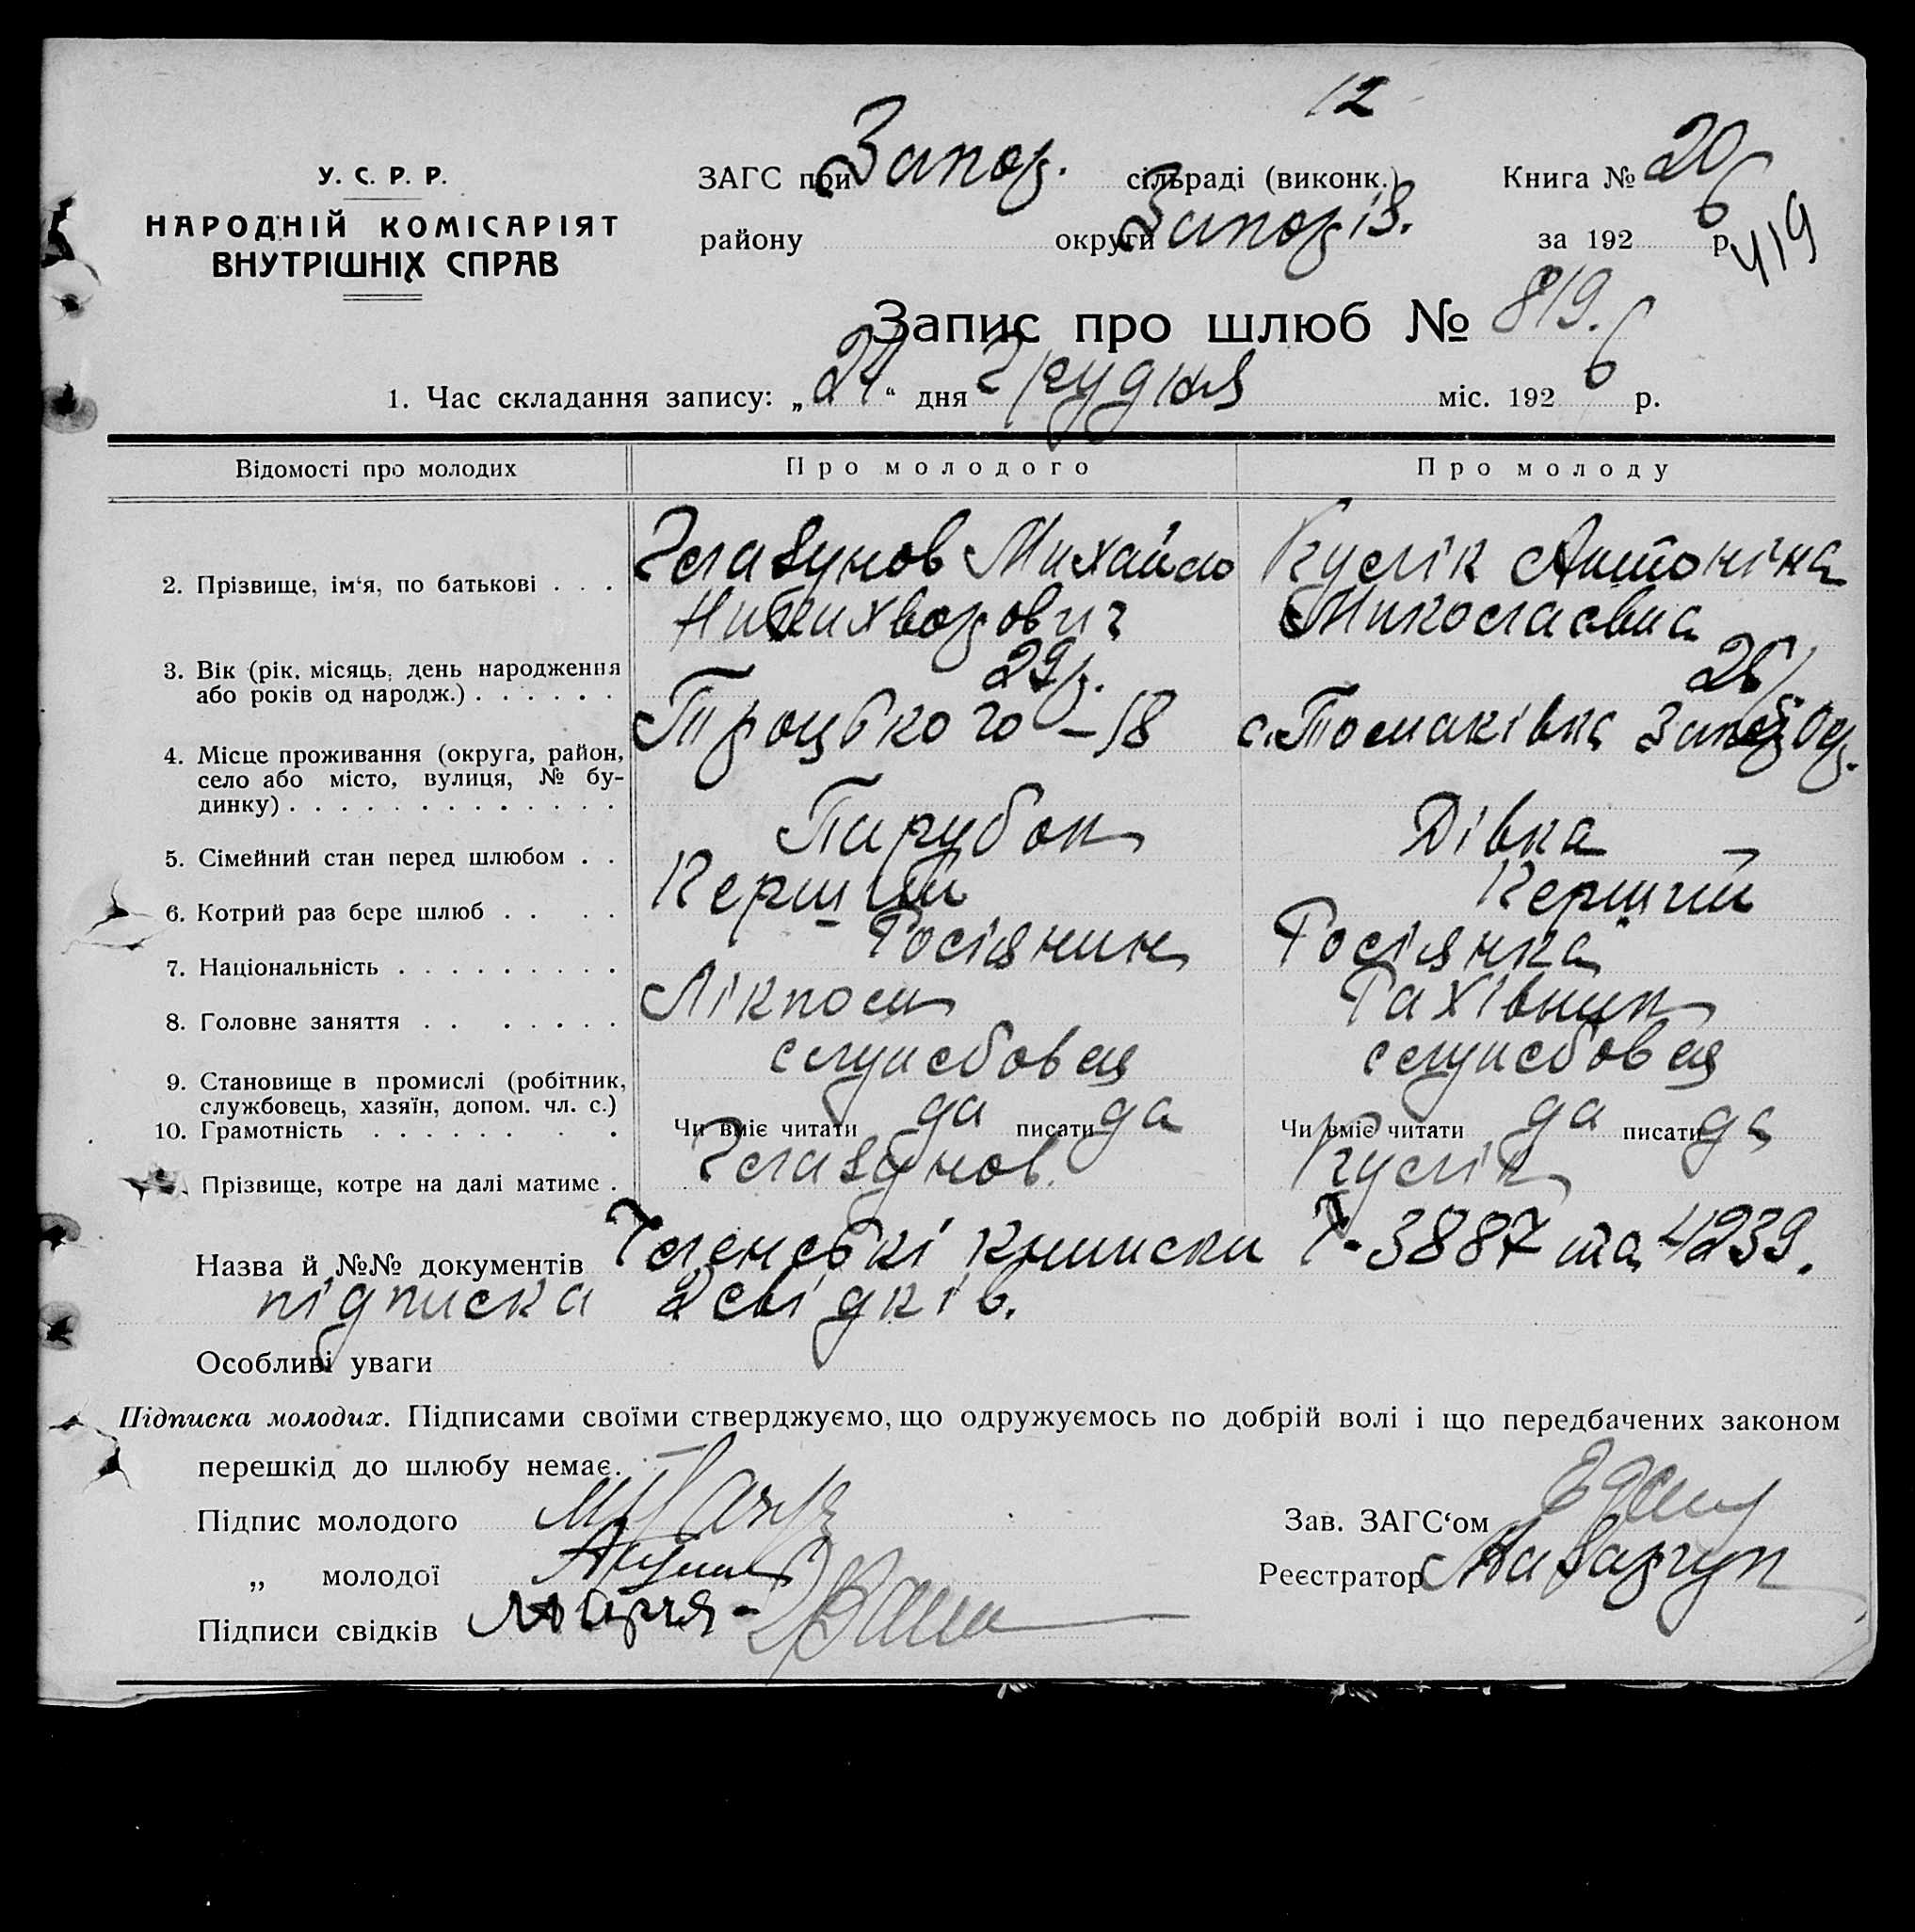 12
У. С. Р. Р.
НАРОДНІЙ КОМІСАРІЯТ
ВНУТРІШНІХ СПРАВ
ЗАГС при Запор. сільраді (виконк.) Книга № 20
району округи Запоріз. за 1926 р.
419
Запис про шлюб № 819.
1. Час складання запису: „24“ дня Грудня міс. 1926 р.
Відомості про молодих Про молодого Про молоду
2. Прізвище, ім‘я, по батькові . . . Глазунов Михайло Куслік Антоніна
Микихворович Миколаєвна
3. Вік (рік, місяць, день народження
або років од народж.) . . . . . . 29 р. 26 р.
4. Місце проживання (округа, район,
село або місто, вулиця, № бу-
динку) . . . . . . . . . . . . . Троцького – 18 с. Томаківка Запор. Ок.
5. Сімейний стан перед шлюбом . . Парубок Дівка
6. Котрий раз бере шлюб . . . . Перший Перший
7. Національність . . . . . . . . . Росіянин Росіянка
8. Головне заняття . . . . . . . Лікпом Рахівник
9. Становище в промислі (робітник,
службовець, хазяїн, допом. чл. с.) службовец службовец
10. Грамотність . . . . . . . . . Чи вміє читати да писати да Чи вміє читати да писати да
Прізвище, котре на далі матиме . Глазунов. Куслік
Назва й №№ документів Членські книжки Г-3887 та 4239.
підписка 2 свідків.
Особливі уваги
Підписка молодих. Підписами своїми стверджуємо, що одружуємось по добрій волі і що передбачених законом
перешкід до шлюбу немає.
Підпис молодого Зав. ЗАГС‘ом
„ молодої Реєстратор
Підписи свідків